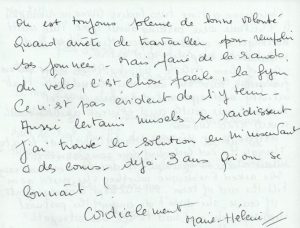 On est toujours pleine de bonne volonté
Quand arrête de travailler pour remplir
ses journées - Mais faire de la rando,
du velo, c'est chose facile, la gym
Ce n'est pas évident de s'y tenir -
Aussi certains muscles se raidissent
J'ai trouvé la solution en m'inscrivant
à des cours - déjà 3 ans qu'on se
connaît - !
Cordialement
Marie-Hélène